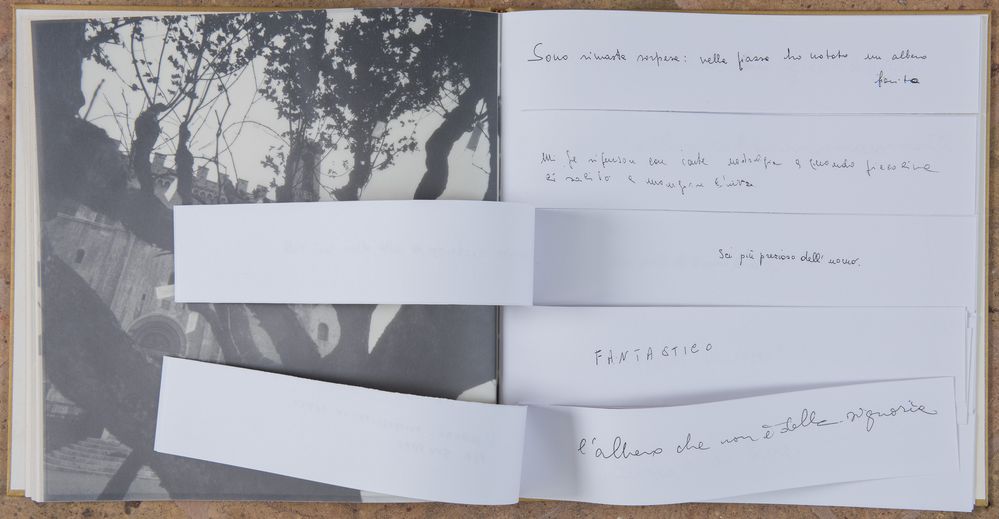 Sono rimasta sospesa: nella piazza ho notato un albero
ferito
con tante nostalgia a quando piccolina
ci salivo a mangiare l'uva
Sei più prezioso dell'uomo.
FANTASTICO
l'albero che non è della signoria